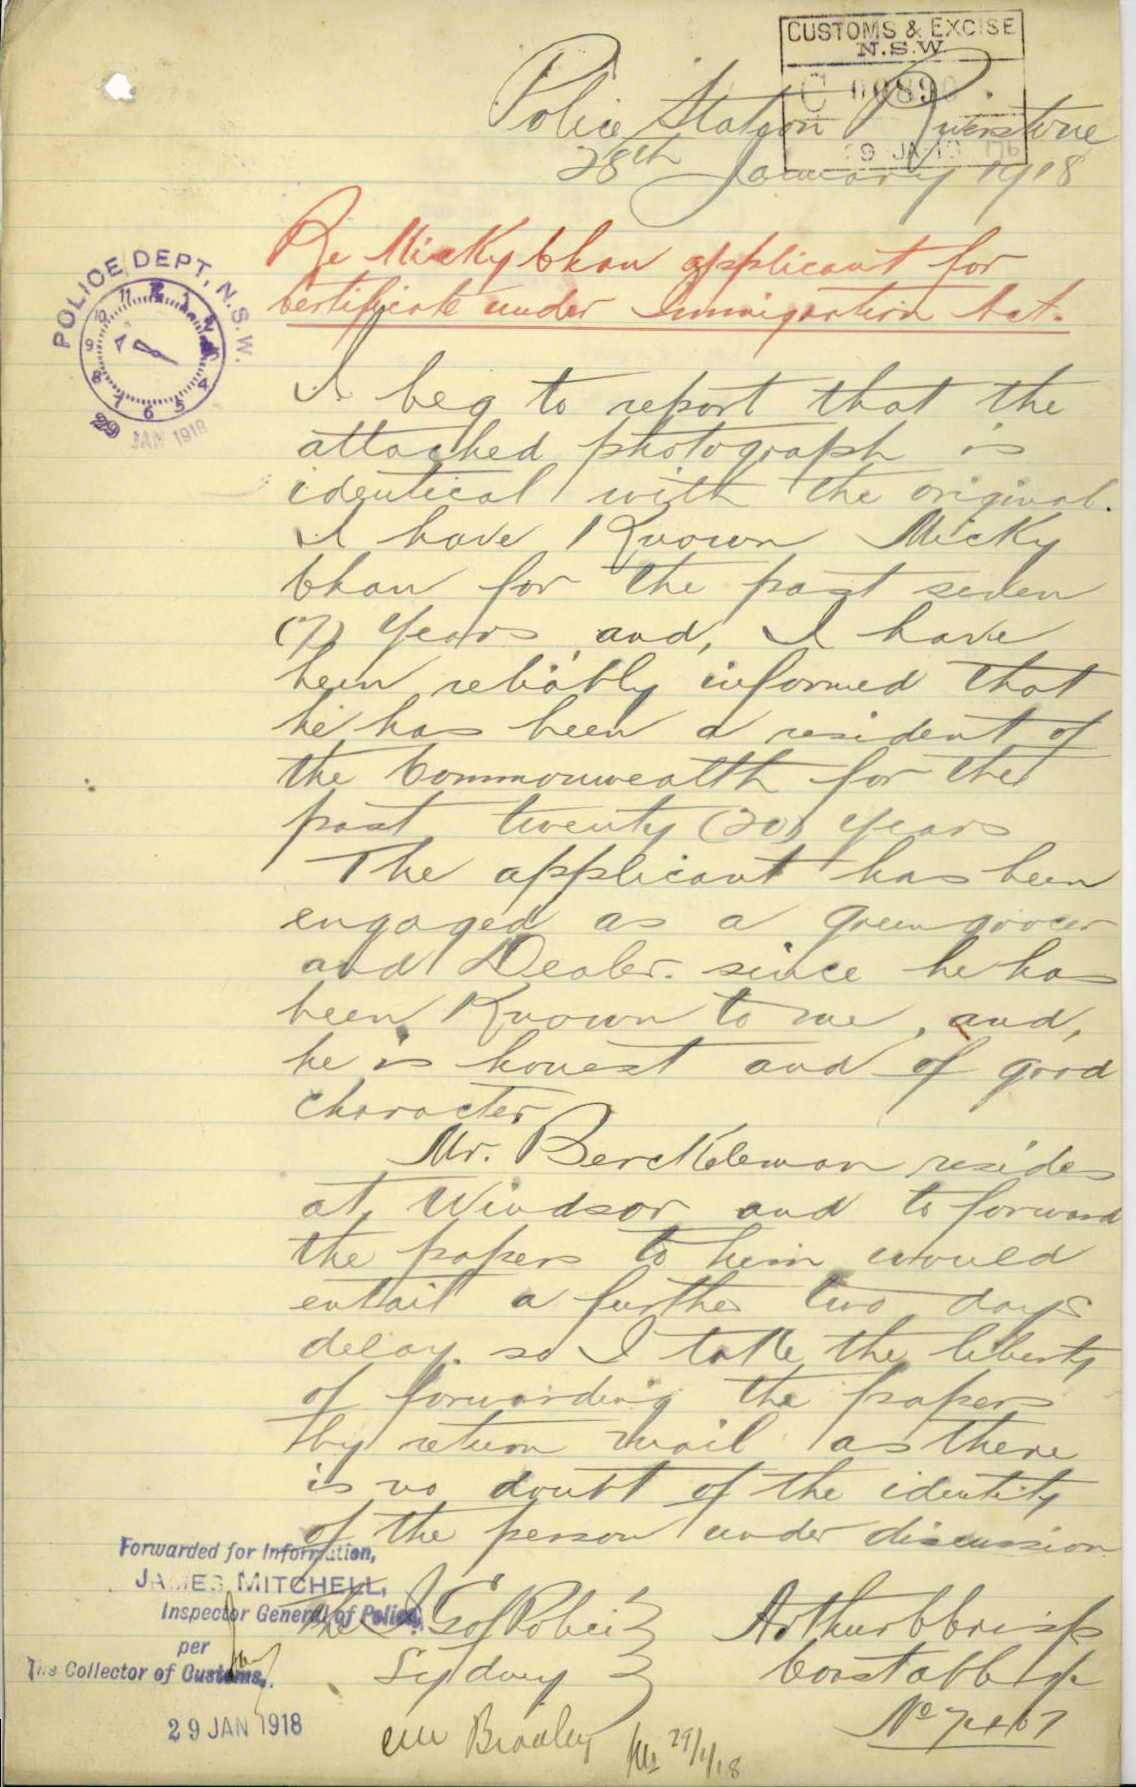 CUSTOMS & EXCISE
N.S.W.
C 00890
29 JA 19
Police Station Riverstone
28th January 1918
Re Micky Khan applicant for
Certificate under Immigration Act.
POLICE DEPT, N.S.W.
29 JAN 1918
I beg to report that the
attached photograph is
identical with the original.
I have Known Micky
Khan for the past seven
(7) years, and, I have
been reliably informed that
he has been a resident of
the Commonwealth for the
past twenty (20) years
The applicant has been
engaged as a greengrocer
and Dealer. since he has
been Known to me, and,
he is honest and of good
character.
Mr. Berckeleman resides
at Windsor and to forward
the papers to him would
entail a further two days
delay. so I take the liberty
of forwarding the papers
by return mail as there
is no doubt of the identity
of the person under discussion
Forwarded for Information,
JAMES MITCHELL,
Inspector General of Police,
per
The Collector of Customs,
29 JAN 1918
The I G of Police
Sydney
Arthur C Crisp
Constable
No 7467
Bradley
29/1/18